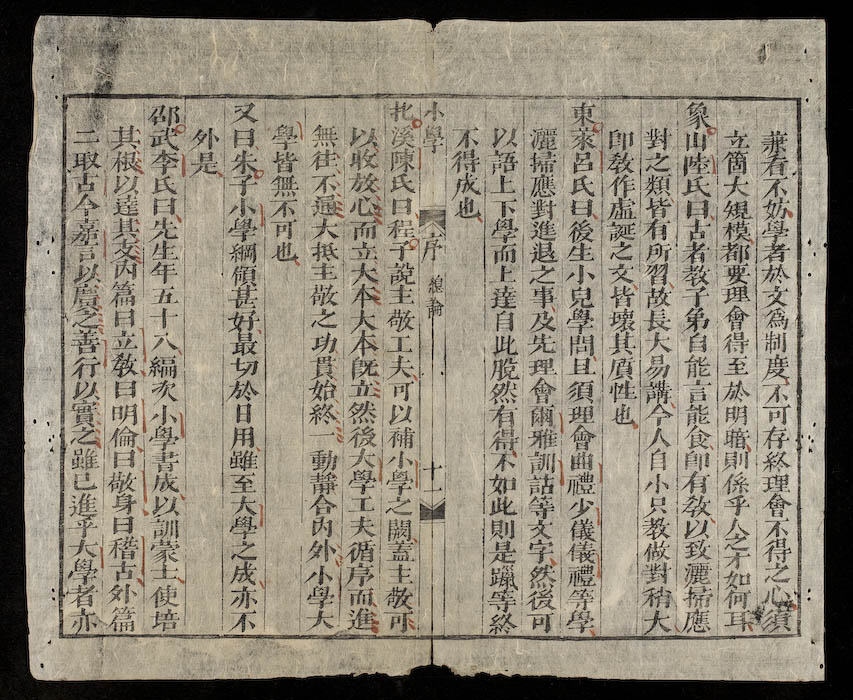 兼看不妨學者於文爲制度不可存終理會不得之心須
立箇大規模都要理會得至於明暗則係乎人之才如何耳
象山陸氏曰古者教子弟自能言能食卽有教以致灑掃應
對之類皆有所習故長大易講今人自小只教做對稍大
卽教作虛誕之文皆壞其質性也
東萊呂氏曰後生小兒學問且須理會曲禮少儀儀禮等學
灑掃應對進退之事及先理會爾雅訓詁等文字然後可
以語上下學而上達自此脫然有得不如此則是躐等終
不得成也
小學 序 總論 十一
北溪陳氏曰程子說主敬工夫可以補小學之闕蓋主敬可
以收放心而立大本大本旣立然後大學工夫循序而進
無往不通大抵主敬之功貫始終一動靜合內外小學大
學皆無不可也
又曰朱子小學綱領甚好最切於日用雖至大學之成亦不
外是
邵武李氏曰先生年五十八編次小學書成以訓蒙士使培
其根以達其支內篇曰立教曰明倫曰敬身曰稽古外篇
二取古今嘉言以廣之善行以實之雖已進乎大學者亦